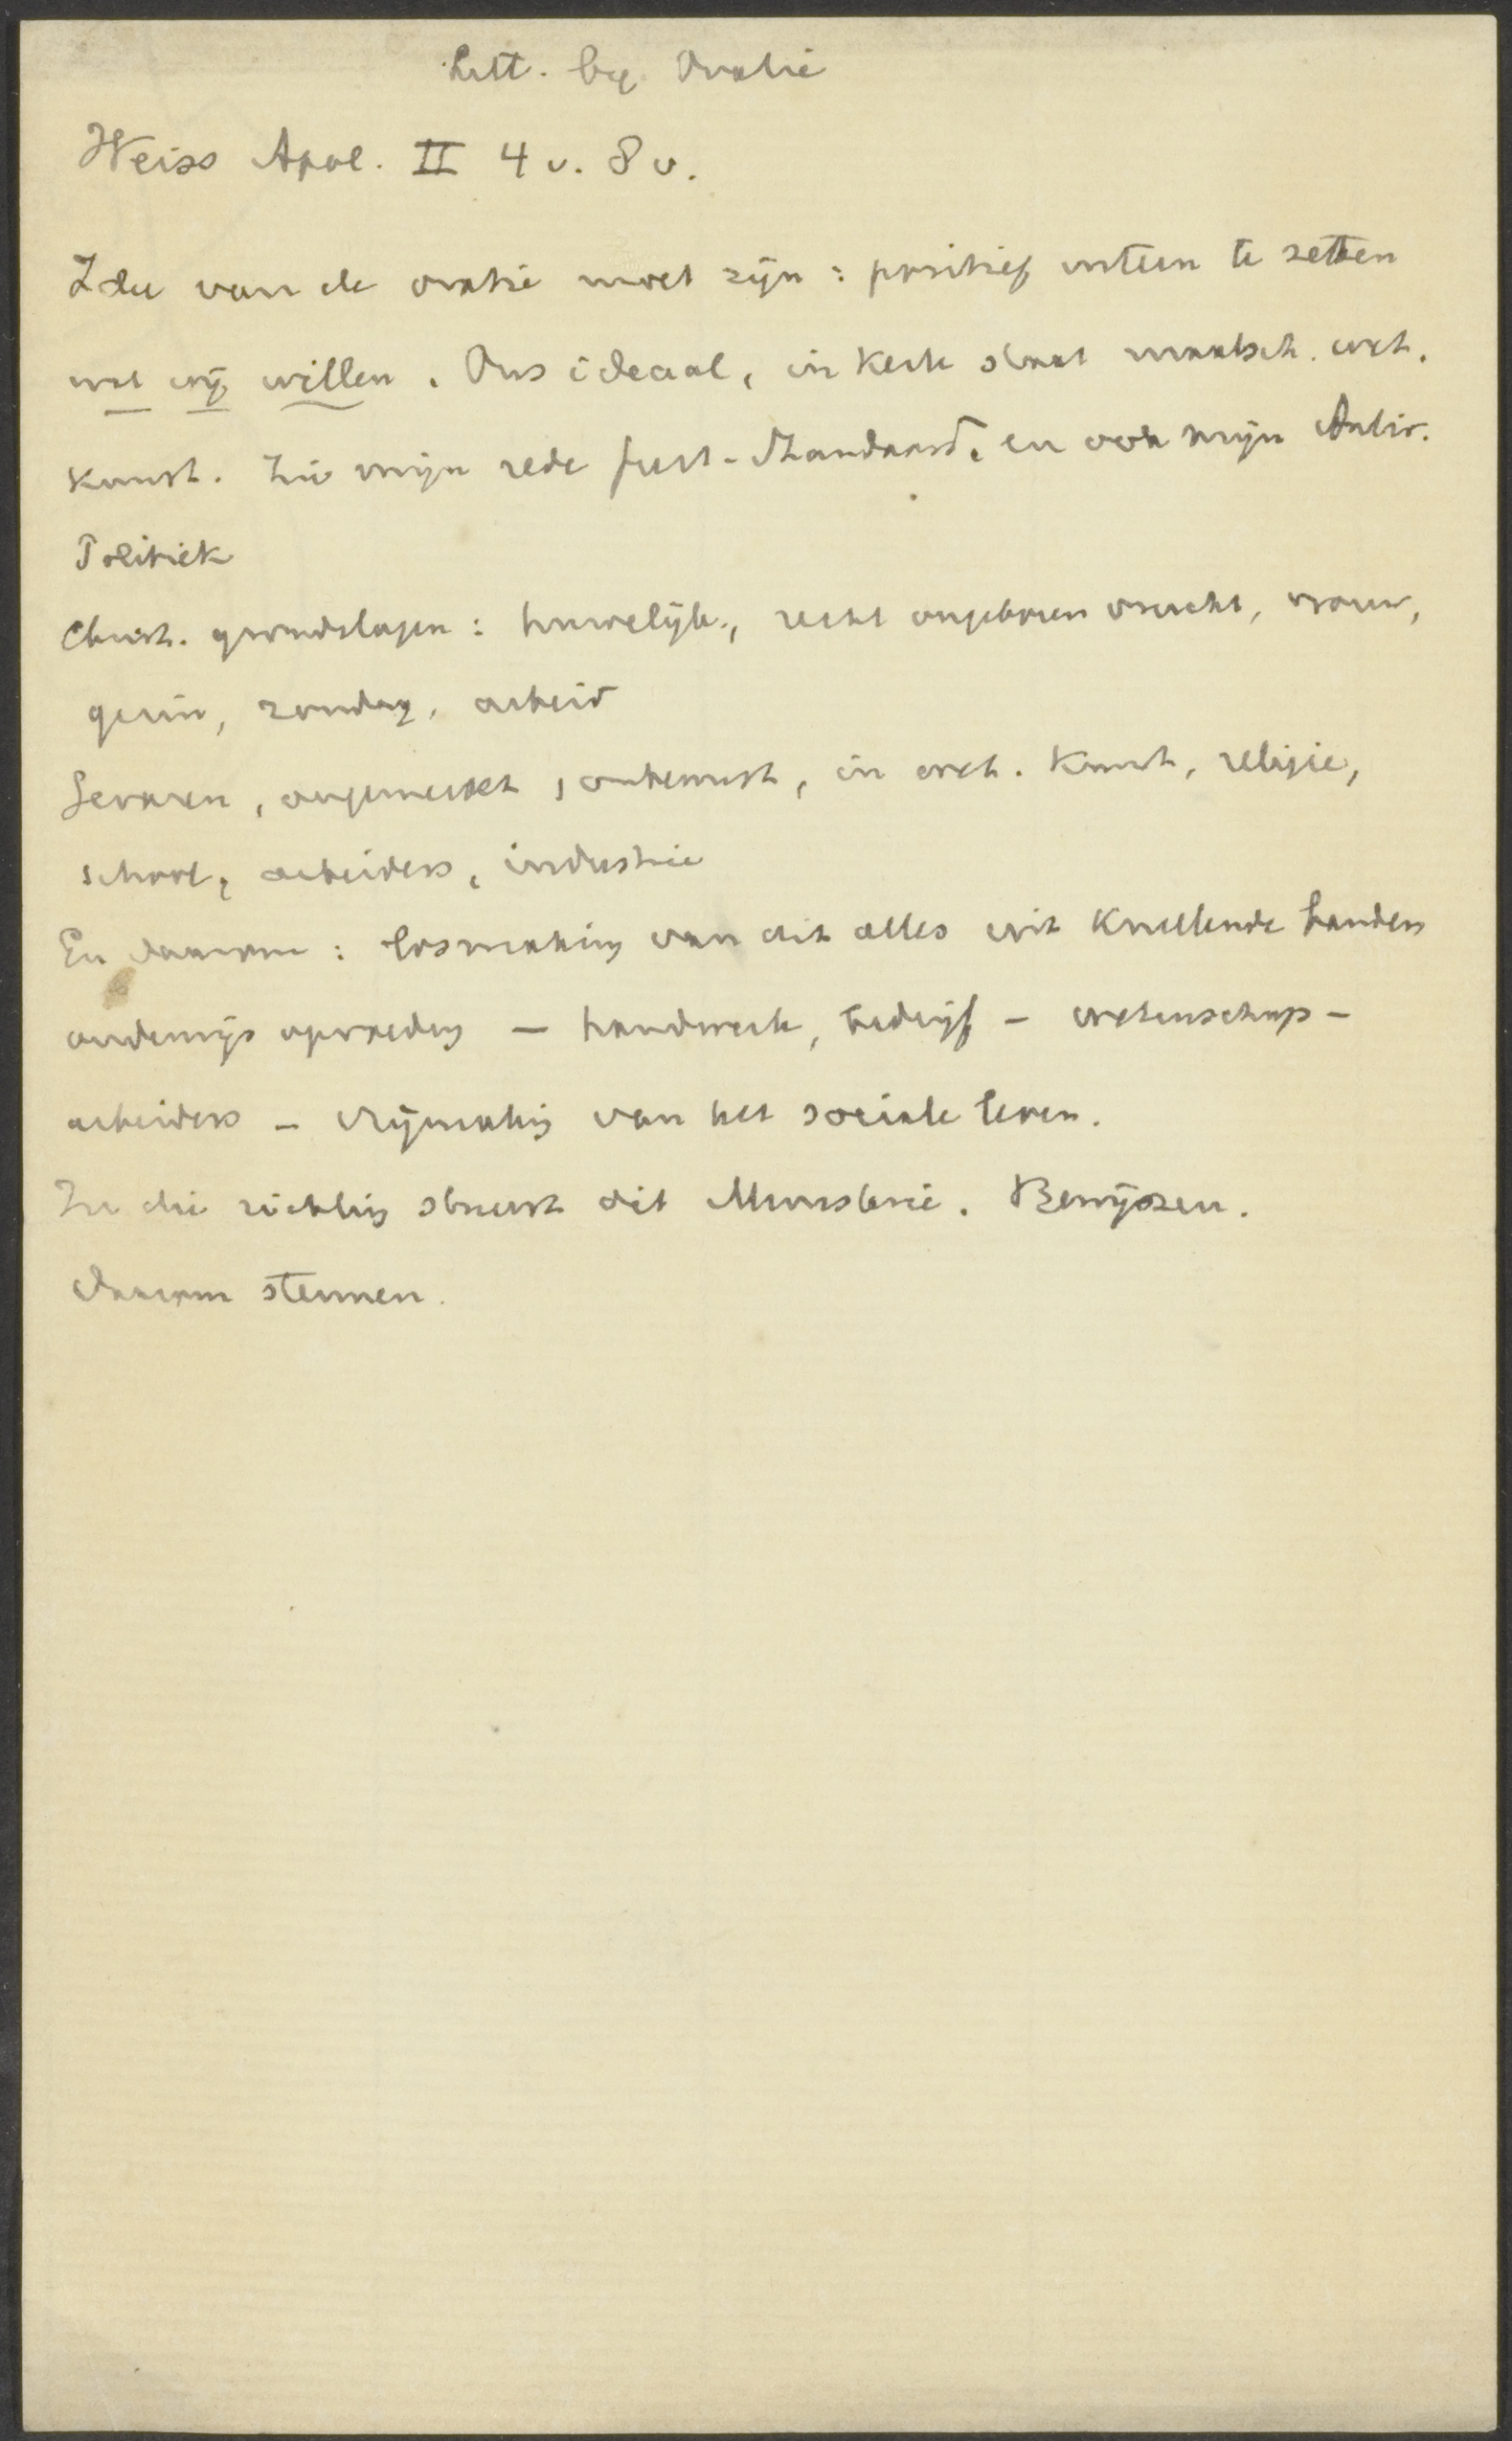 Litt. bij Oratie
Weiss Apol. II 4 v. 8 v.
Idee van de oratie moet zijn : positief uiteen te zetten
wat wij willen. Ons ideaal, in Kerk staat maatsch. wet.
Kunst. Zie mijn rede feest-Standaard. en ook mijn Antir.
Politiek
Christ. grondslagen : huwelijk, recht ongeboren vrucht, vrouw,
gezin, zondag, arbeid
Gevaren, ongemerkt, onbewust, in wet. Kunst, religie,
school, arbeiders, industrie
En daarom : losmaking van dit alles uit Knellende banden
onderwijs opvoeding – handwerk, bedrijf – wetenschap –
arbeiders – vrijmaking van het sociale leven.
In die richting stuurt dit Ministerie. Bewijzen.
daarom stemmen.